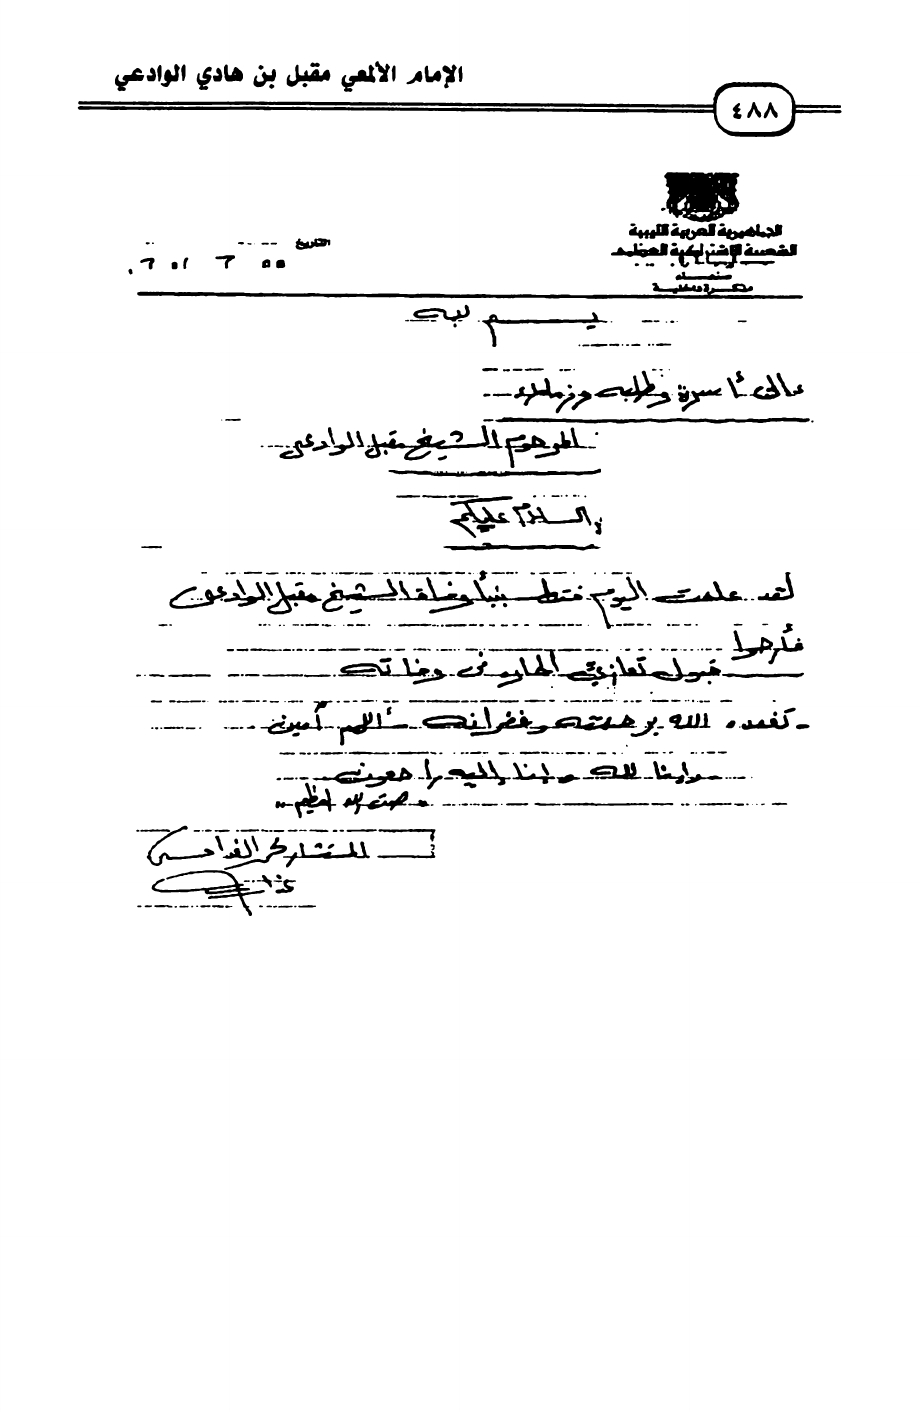 الإمام الألمعي مقبل بن هادي الوادعي
٤٨٨
الجماهيرية العربية الليبية
الشعبية الإشتراكية العظمى
التاريخ
بسم الله
إلى أسرة وطلبه وزملاء
المرحوم الشيخ مقبل الوادعي
السلام عليكم
لقد علمت اليوم فقط بنبأ وفاة الشيخ مقبل الوادعي
فأرجوا
قبول تعازي الحاره في وفاته
تغمده الله برحمته وغفرانه - اللهم آمين
وإنا لله وإنا إليه راجعون
صدق الله العظيم
المستشار